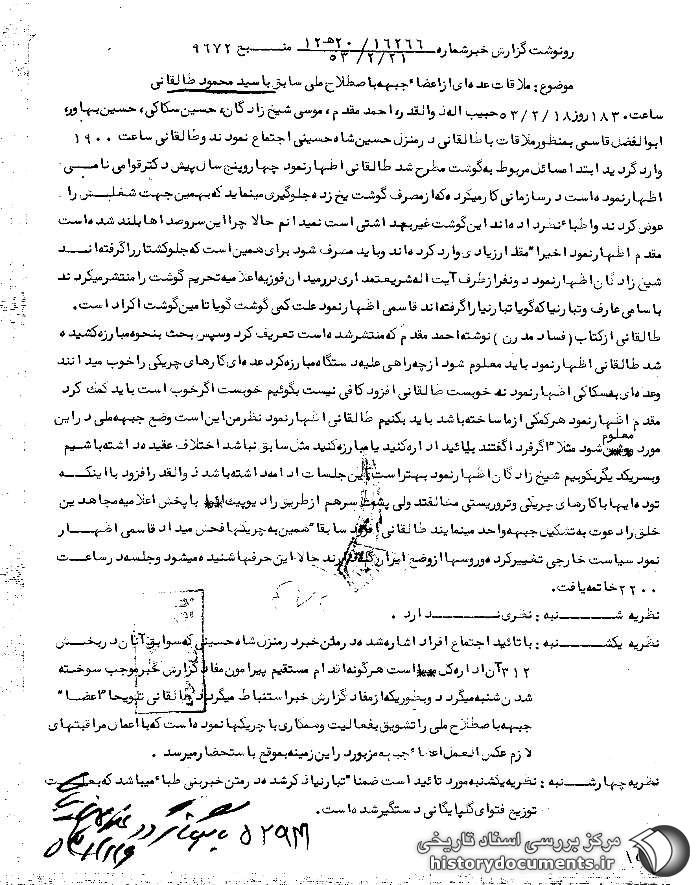 رونوشت گزارش خبر شماره ۱۶۲۶۶/۲۰هـ۱۲ منبع ۹۶۷۲
۵۳/۲/۲۱
موضوع: ملاقات عده‌ای از اعضاء جبهه باصطلاح ملی سابق با سید محمود طالقانی
ساعت ۱۸۳۰ روز ۵۳/۲/۱۸ حبیب اله ذوالقدر، احمد مقدم، موسی شیخ زادگان، حسین سکاکی، حسین بهاور،
ابوالفضل قاسمی بمنظور ملاقات با طالقانی در منزل حسین شاه حسینی اجتماع نمودند و طالقانی ساعت ۱۹۰۰
وارد گردید ابتدا مسائل مربوط به گوشت مطرح شد طالقانی اظهار نمود چهار و پنج سال پیش دکتر قوامی نامی
اظهار نموده است در سازمانی کار میکرده که از مصرف گوشت یخ زده جلوگیری مینماید که بهمین جهت شغلش را
عوض کردند و اطباء نظر داده‌اند این گوشت غیر بهداشتی است نمیدانم حالا چرا این سر و صداها بلند شده است
مقدم اظهار نمود اخیرا" مقدار زیادی وارد کرده‌اند و باید مصرف شود برای همین است که جلو کشتار را گرفته‌اند
شیخ زادگان اظهار نمود دو نفر از طرف آیت اله شریعتمداری در میدان فوزیه اعلامیه تحریم گوشت را منتشر میکردند
با سامی عارف و تبارنیا که گویا تبارنیا را گرفته‌اند قاسمی اظهار نمود علت کمی گوشت گویا تامین گوشت اکراد است.
طالقانی از کتاب (فساد مدرن) نوشته احمد مقدم که منتشر شده است تعریف کرد و سپس بحث بنحوه مبارزه کشیده
شد طالقانی اظهار نمود باید معلوم شود از چه راهی علیه دستگاه مبارزه کرد عده‌ای کارهای چریکی را خوب میدانند
وعده‌ای بد سکاکی اظهار نمود نه خوبست طالقانی افزود کافی نیست بگوئیم خوبست اگر خوب است باید کمک کرد
مقدم اظهار نمود هر کمکی از ما ساخته باشد باید بکنیم طالقانی اظهار نمود نظر من این است وضع جبهه ملی در این
مورد معلوم شود مثلا" اگر فردا گفتند بیائید اداره کنید یا مبارزه کنید مثل سابق نباشد اختلاف عقیده داشته باشیم
و بسر یکدیگر بکوبیم شیخ زادگان اظهار نمود بهتر است این جلسات ادامه داشته باشد ذوالقدر افزود با اینکه
توده‌ایها با کارهای چریکی و تروریستی مخالفتد ولی پشت سر هم از طریق رادیو پیک با پخش اعلامیه مجاهدین
خلق را دعوت به تشکیل جبهه واحد مینمایند طالقانی افزود سابقا" همین به چریکها فحش میداد قاسمی اظهار
نمود سیاست خارجی تغییر کرده و روسها از وضع ایران گله دارند حالا این حرفها شنیده میشود و جلسه در ساعت
۲۲۰۰ خاتمه یافت.
نظریه شنبه: نظری ندارد.
نظریه یکشنبه: با تائید اجتماع افراد اشاره شده در متن خبر در منزل شاه حسینی که سوابق آنان در بخش
۳۱۲ آن اداره کل است هرگونه اندام مستقیم پیرامون مفاد گزارش خبر موجب سوخته
شدن شنبه میگردد و بطوریکه از مفاد گزارش خبر استنباط میگردد طالقانی تلویحا" اعضاء
جبهه باصطلاح ملی را تشویق بفعالیت و همکاری با چریکها نموده است که با اعمال مراقبتهای
لازم عکس العمل اعضاء جبهه مزبور در این زمینه بموقع باستحضار میرسد.
نظریه چهارشنبه: نظریه یکشنبه مورد تائید است ضمنا" تبارنیا ذکر شده در متن خبر بنی طباء میباشد که بعلت
توزیع فتوای گلپایگانی دستگیر شده است.
مرکز بررسی اسناد تاریخی
historydocuments.ir